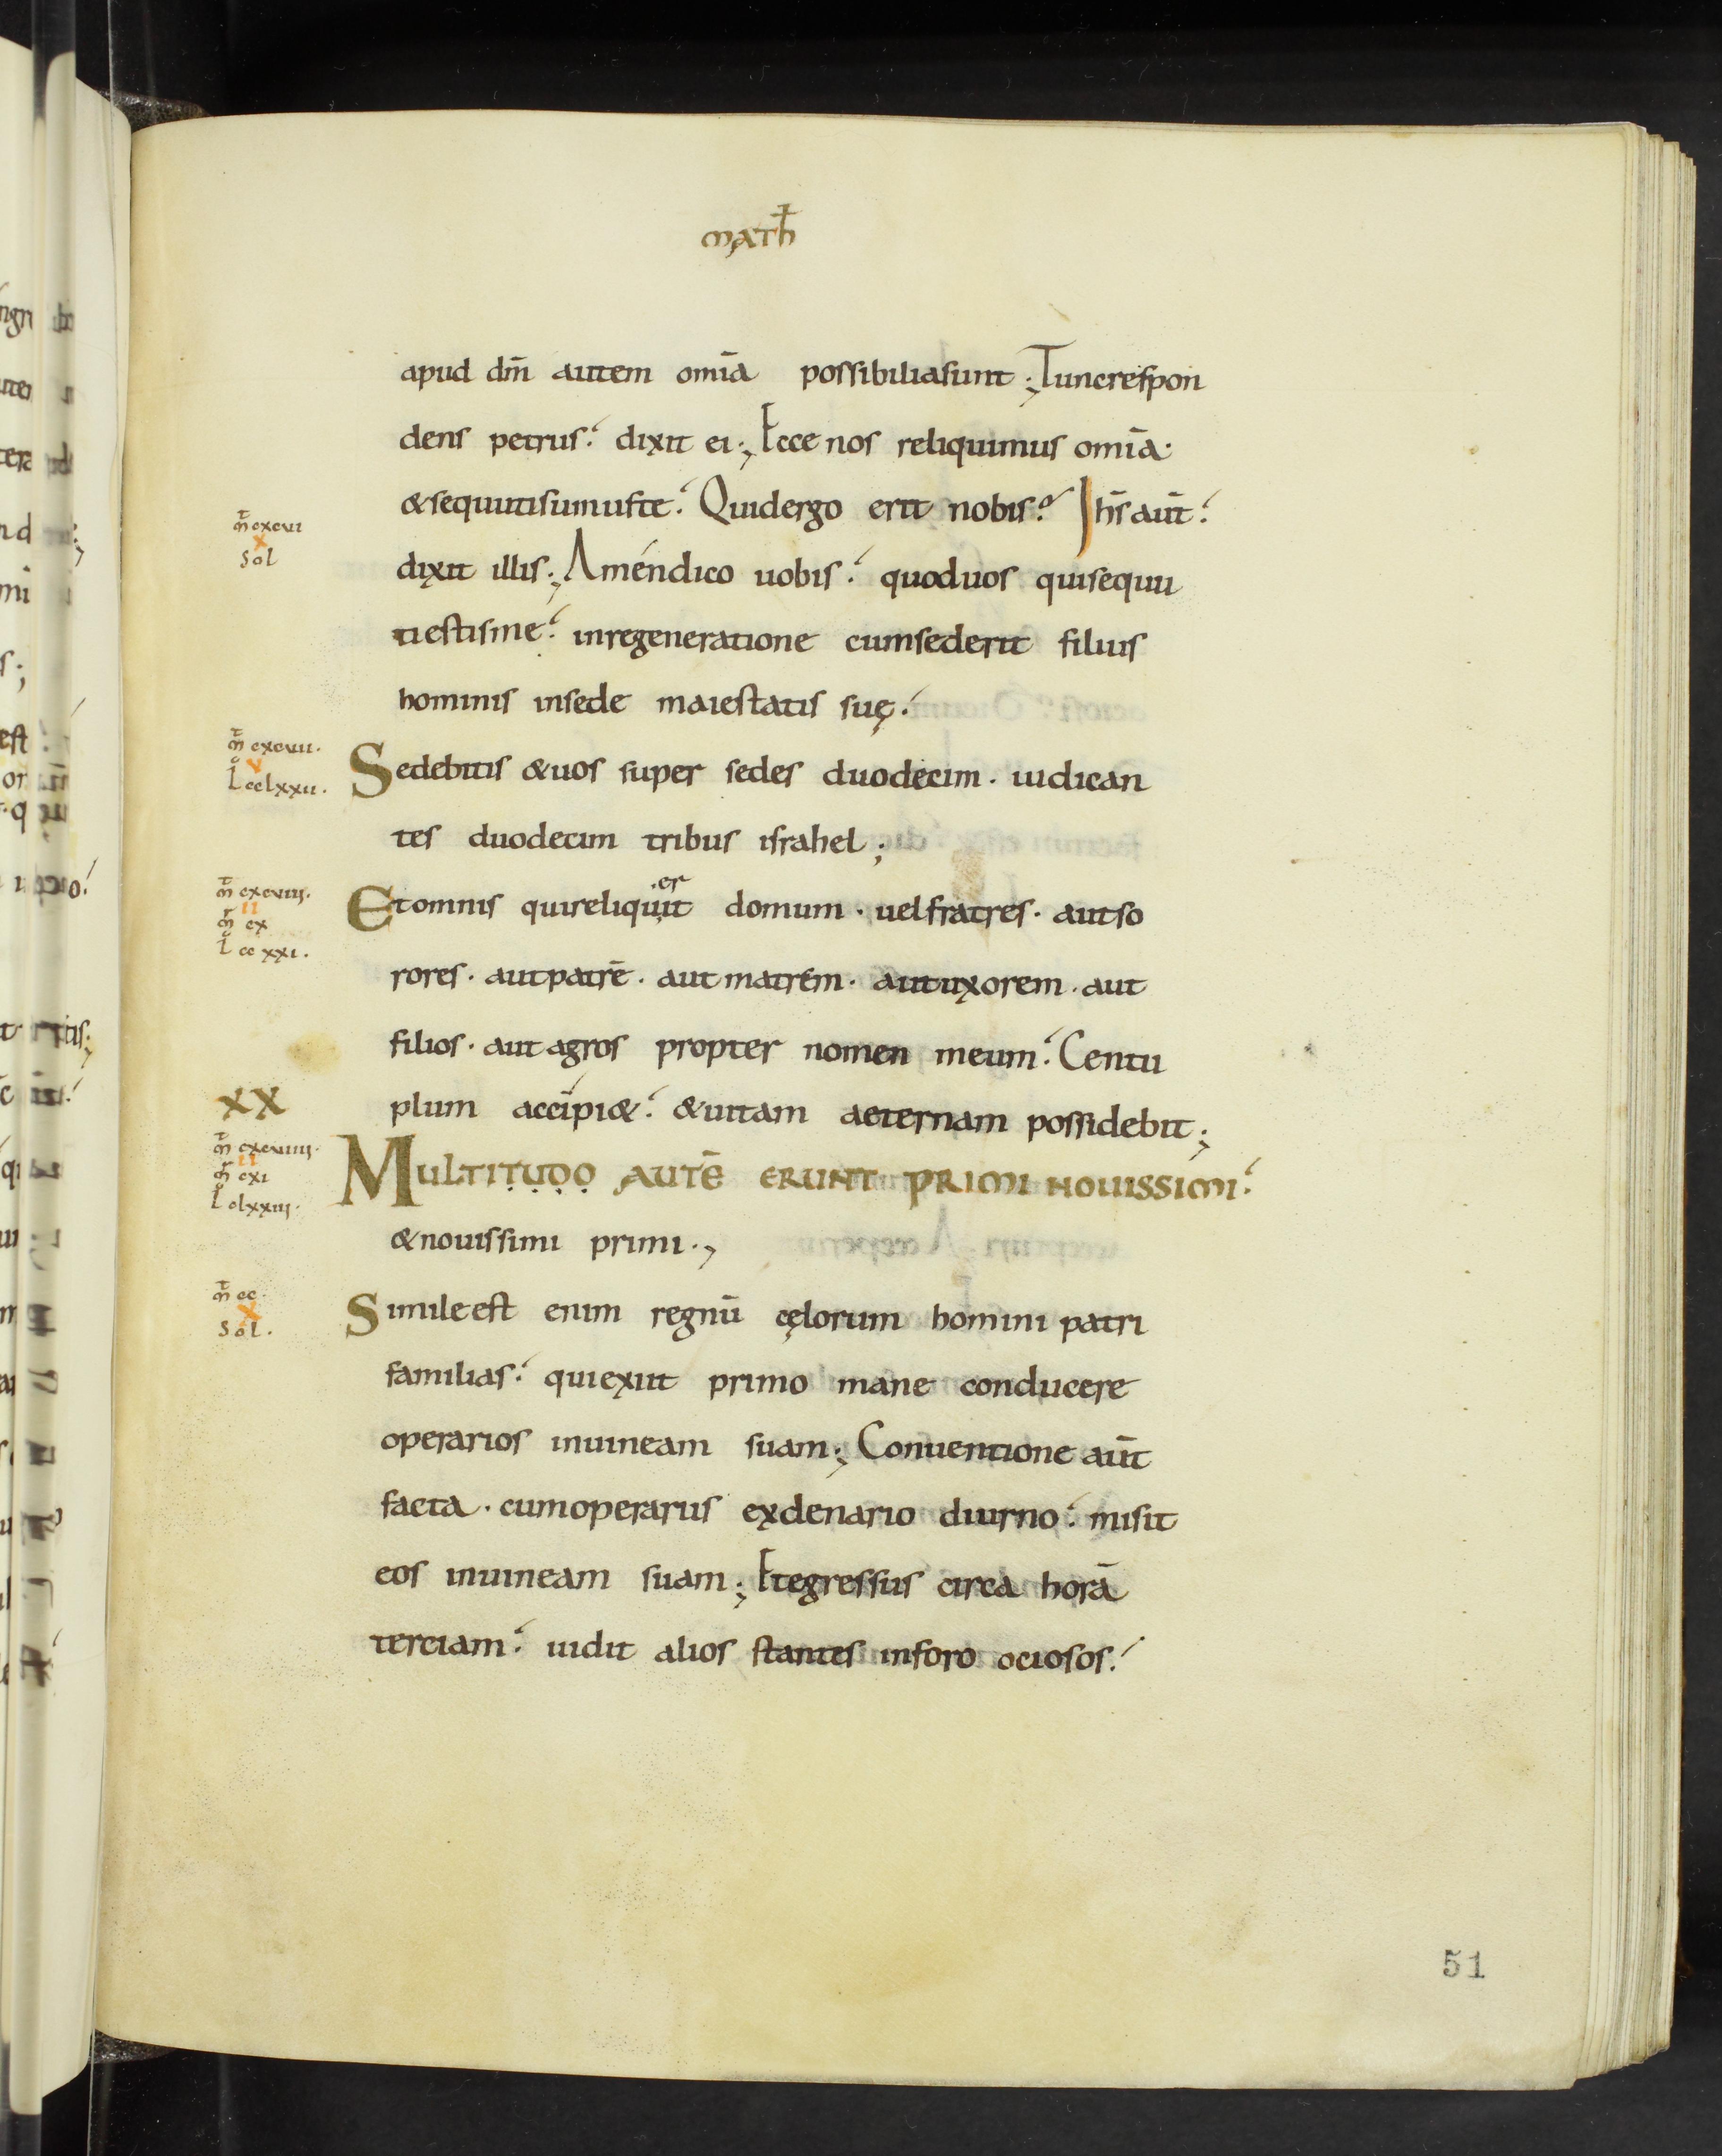 math̄
apud dm̄ autem omīa possibiliasunt; Tuncrespon
dens petrus. dixit ei; Ecce nos reliquimus omīa·
&sequutisumuste. Quidergo erit nobis? Ihs̄ aut̄.
m̄ cxcvi
x
sol
dixit illis; Améndico uobis. quoduos quisequu
tiestisme. inregeneratione cumsederit filius
hominis insede maiestatis suę.
m̄ cxcvii.
v
L cclxxii.
Sedebitis &uos super sedes duodecim · iudican
tes duodecim tribus israhel;
m̄ cxcviii.
ii
m̄ cx
L ccxxi.
er
Etomnis quireliquit domum · uelfratres · autso
rores · autpatrē · aut matrem · autuxorem · aut
filios · aut agros propter nomen meum. Centu
plum accipi&. &uitam aeternam possidebit;
XX
m̄ cxcviiii.
ii
m̄ cxi
L clxxiii.
MULTITUDO AUTĒ ERUNT PRIMI NOUISSIMI.
&nouissimi primi.,
m̄ cc.
x
sol.
Simileest enim regnū cęlorum homini patri
familias. quiexiit primo mane conducere
operarios inuineam suam; Conuentione aut̄
facta · cumoperariis exdenario diurno. misit
eos inuineam suam; Etegressus circa horā
terciam. uidit alios stantes inforo ociosos.
51